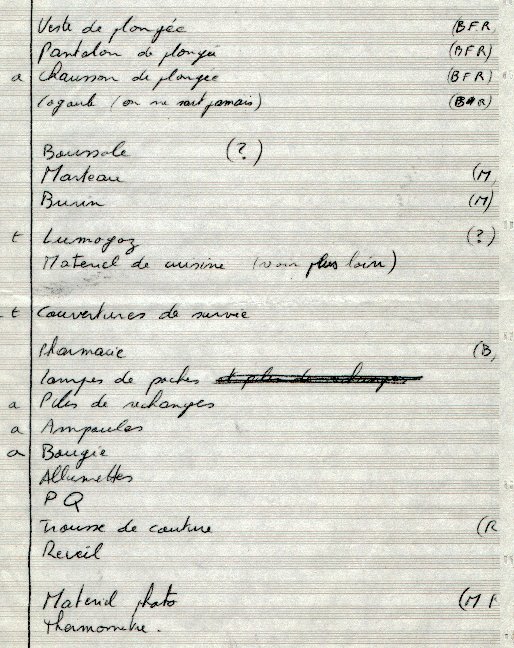 Veste de plongée (BFR)
Pantalon de plongée (BFR)
a Chausson de plongee (BFR)
Cagoule (on ne sait jamais) (B R)
Boussole (?)
Marteau (M,
Burin (M)
t Lumogaz (?)
Materiel de cuisine (voir plus loin)
t Couvertures de survie
Pharmacie (B,
Lampes de poches et piles de rechanges
a Piles de rechanges
a Ampoules
a Bougie
Allumettes
PQ
Trousse de couture (R
Reveil
Materiel photo (M F
Thermometre.